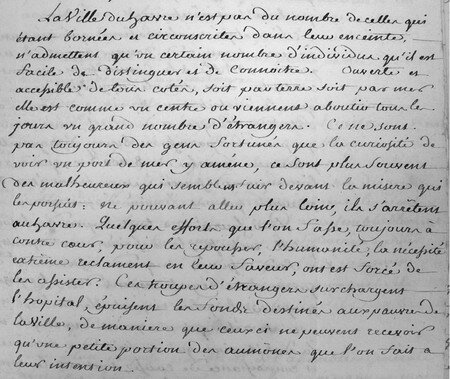 La Ville du havre n'est pas du nombre de celles qui
étant bornées et circonscrites dans leur enceinte,
n'admettent qu'un certain nombre d'individus qu'il est
facile de distinguer et de connoitre. Ouverte et
accessible de tous cotés, soit par terre soit par mer
elle est comme un centre ou viennent aboutir tous les
jours un grand nombre d'étrangers. Ce ne sont
pas toujours des gens fortunés que la curiosité de
voir un port de mer y améne, ce sont plus souvent
des malheureux qui semblent fuir devant la misere qui
les porsuit: ne pouvant aller plus loin, ils s'arrêtent
au havre. Quelques efforts que l'on fasse, toujours à
contre cœur, pour les repousser, l'humanité, la nécessité
extrême reclament en leur faveur, on est forcé de
les assister. Ces troupes d'étrangers surchargent
l'hopital, épuisent les fonds destinés aux pauvres de
la Ville, de maniere que ceux ci ne peuvent recevoir
qu'une petite portion des aumones que l'on fait à
leur intention.